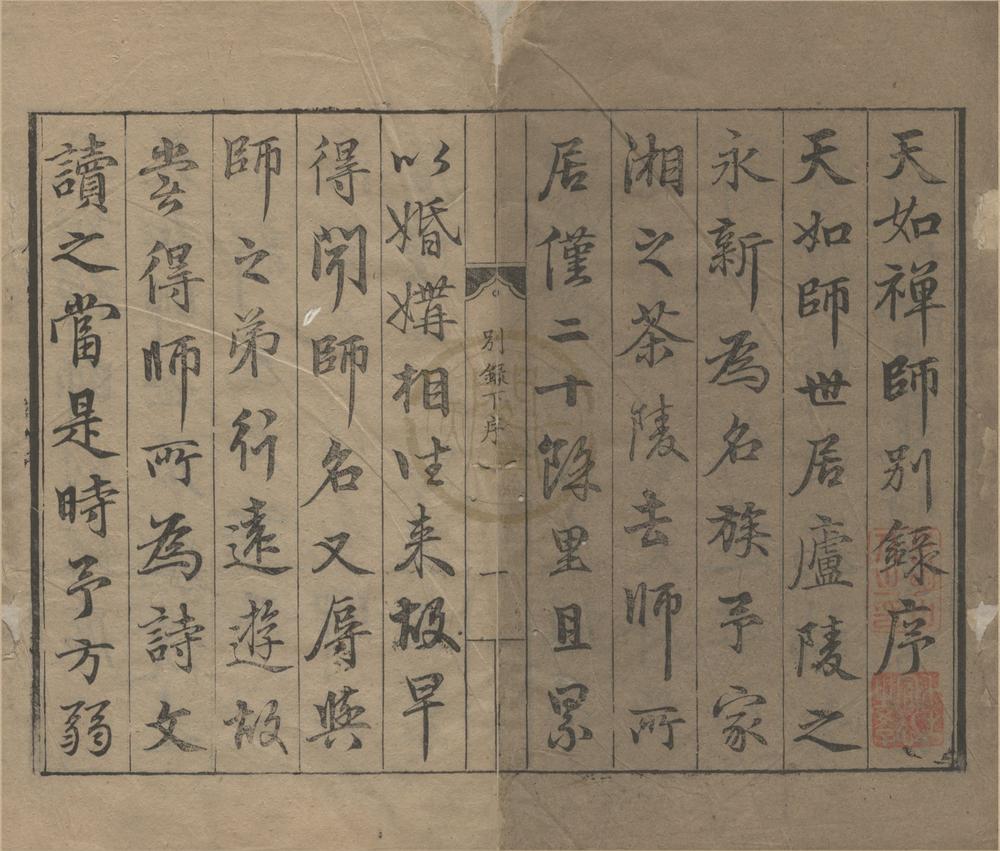 天如禪師別錄序
天如師世居廬陵之
永新為名族予家
湘之茶陵去師所
居僅二十餘里且累
別錄下序
一
以婚媾相往来故早
得聞師名又辱與
師之弟行遠遊故
甞得師所為詩文
讀之當是時予方弱